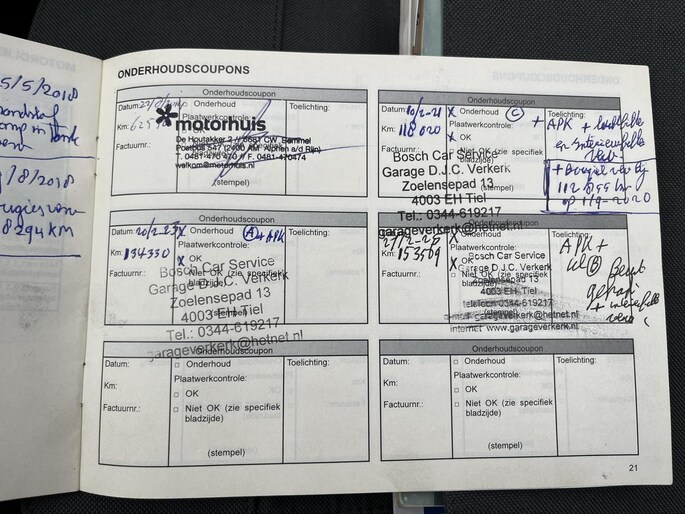 5/5/2018
/8/2018
ONDERHOUDSCOUPONS
Onderhoudscoupon
Datum:
Onderhoud
Toelichting:
Plaatwerkcontrole:
Km:
motorhuis
De Houtakker 2 // 6681 CW Bemmel
Postbus 547 (2400 AM Alphen a/d Rijn)
T. 0481-470 470 // F. 0481-470474
welkom@motorhuis.nl
(stempel)
Onderhoudscoupon
Datum: 10/2-21 X Onderhoud C
Toelichting:
Plaatwerkcontrole:
+ APK + luchtfilter
Km: 118020 X OK
en Interieurfilter
Niet OK (zie specifiek
bladzijde)
Bosch Car Service
Garage D.J.C. Verkerk
Zoelensepad 13
(stempel)
4003 EH Tiel
Tel.: 0344-619217
garageverkerk@hetnet.nl
op 11/9-2020
Onderhoudscoupon
Datum: 20/2-23 X Onderhoud A + APK
Toelichting:
Plaatwerkcontrole:
Km: 134330 X OK
Factuurnr.: Niet OK (zie specifiek
bladzijde)
Bosch Car Service
Garage D.J.C. Verkerk
Zoelensepad 13
4003 EH Tiel
(stempel)
Tel.: 0344-619217
garageverkerk@hetnet.nl
Onderhoudscoupon
Onderhoud
Toelichting:
Plaatwerkcontrole:
APK +
Km: 153509 X OK
B
Factuurnr.: Niet OK (zie specifiek
bladzijde)
Bosch Car Service
Garage D.J.C. Verkerk
Zoelensepad 13
4003 EH Tiel
telefoon: 0344-619217
(stempel)
garageverkerk@hetnet.nl
internet www.garageverkerk.nl
Onderhoudscoupon
Datum: Onderhoud Toelichting:
Plaatwerkcontrole:
Km:
OK
Factuurnr.: Niet OK (zie specifiek
bladzijde)
(stempel)
Onderhoudscoupon
Datum: Onderhoud Toelichting:
Plaatwerkcontrole:
Km:
OK
Factuurnr.: Niet OK (zie specifiek
bladzijde)
(stempel)
21